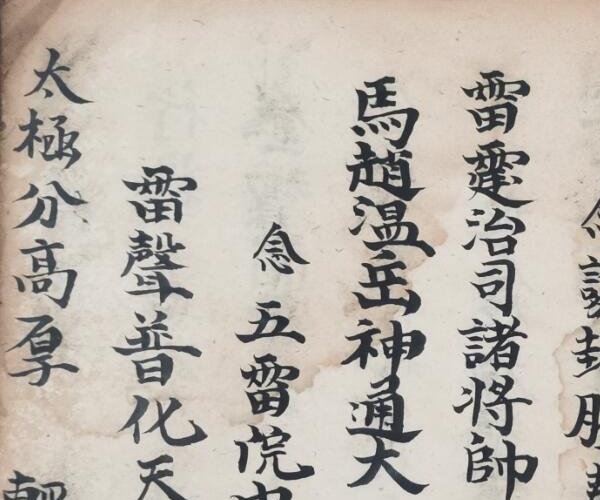 封
雷霆治司諸將帥
馬趙温岳神通大
念五雷院
雷聲普化天
太極分高厚